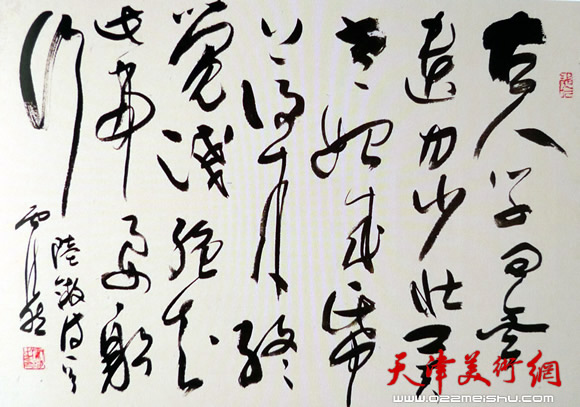 古人学问无
遗力少壮工夫
老始成帋
上得来终
觉浅绝知
此事要躬
行
天津美術網
www.022meishu.com